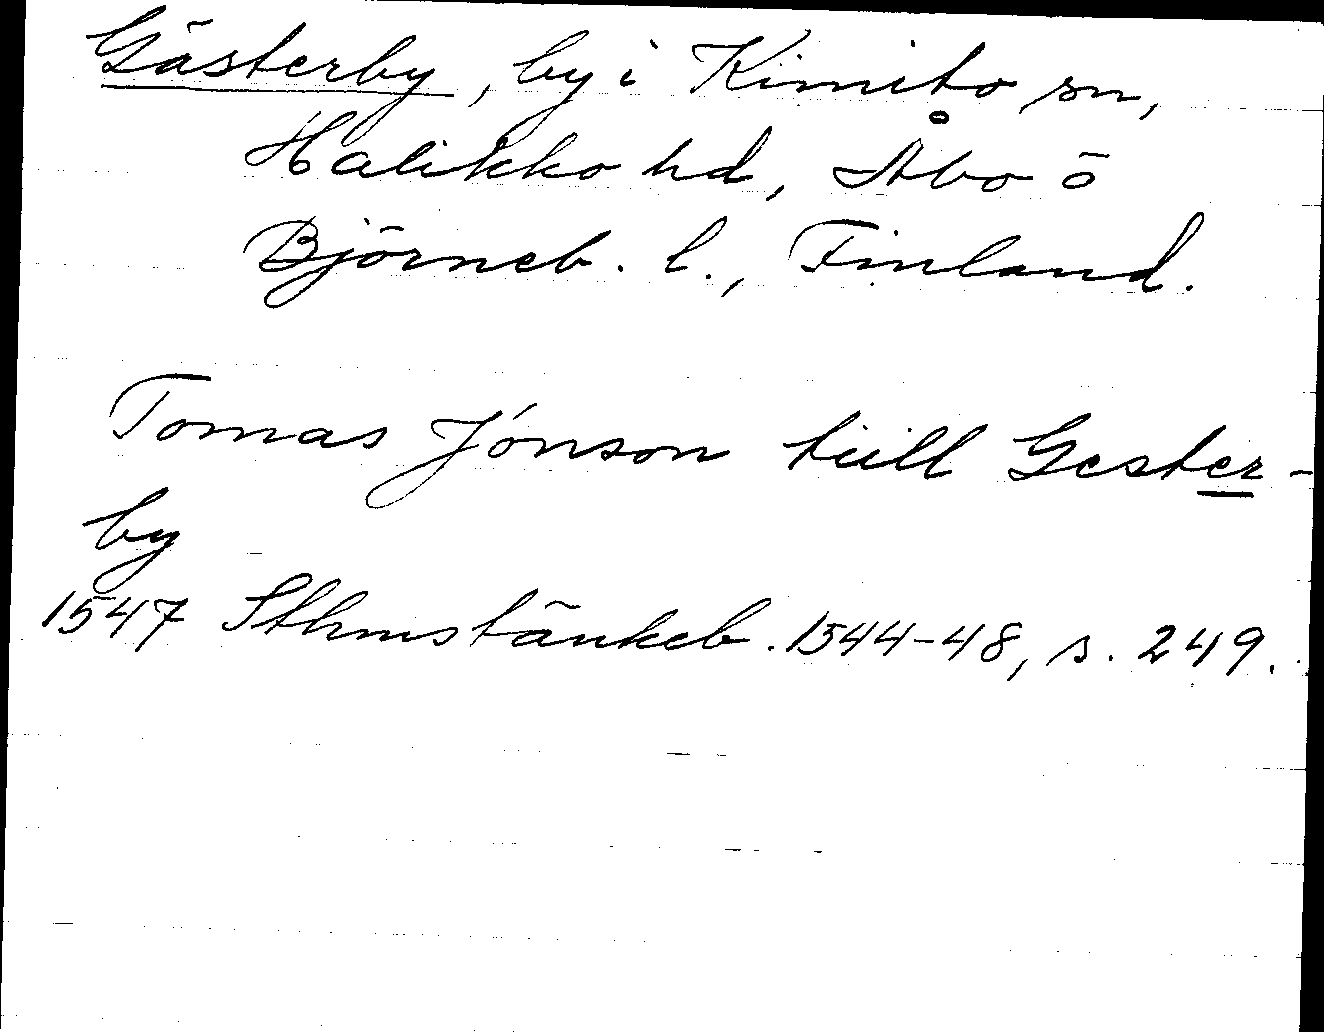 Gästerby, by i Kimito sn,
Halikko hd, Åbo o
Björneb. l., Finland.
Tomas Jönson tiill Gester-
by
1547 Sthmstänkeb. 1544-48, s. 249.